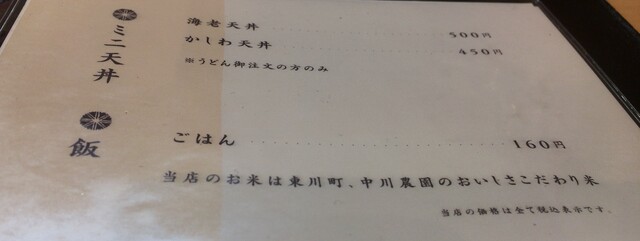 ミニ天丼
海老天丼 500円
かしわ天丼 450円
※うどん御注文の方のみ
飯
ごはん 160円
当店のお米は東川町、中川農園のおいしさこだわり米
当店の価格は全て税込表示です。